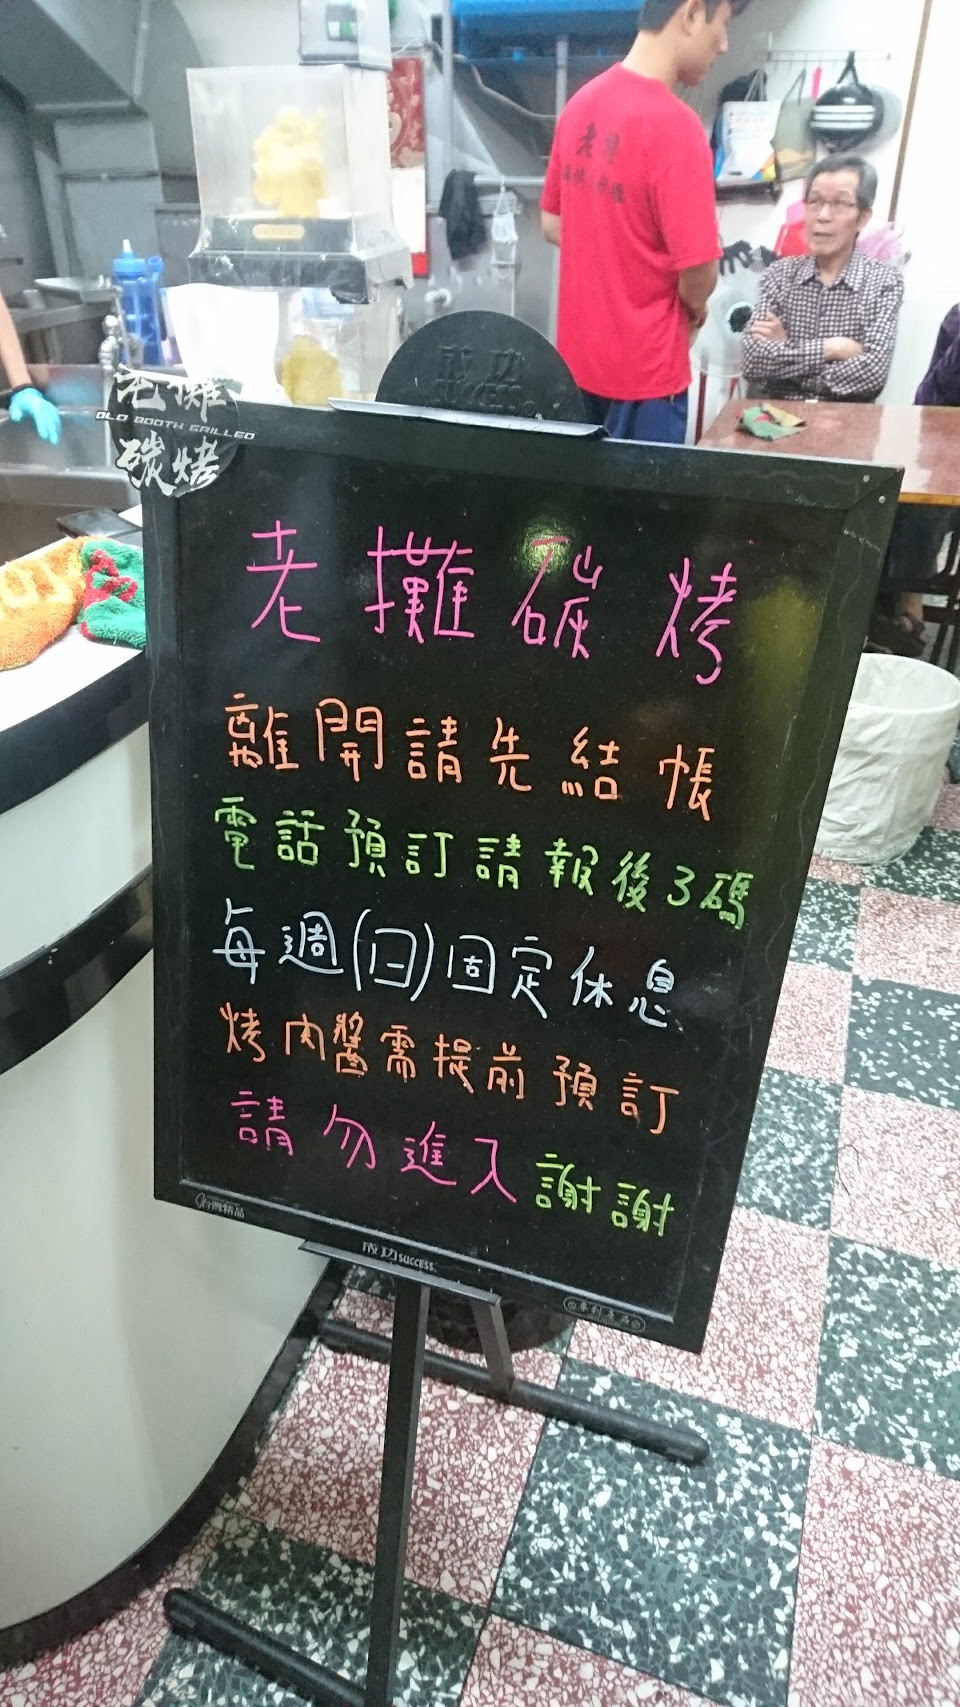 成功
SUCCESS
老攤
OLD BOOTH GRILLED
碳烤
老攤碳烤
離開請先結帳
電話預訂請報後3碼
每週(日)固定休息
烤肉醬需提前預訂
請勿進入謝謝
台灣精品
成功 SUCCESS
專利產品